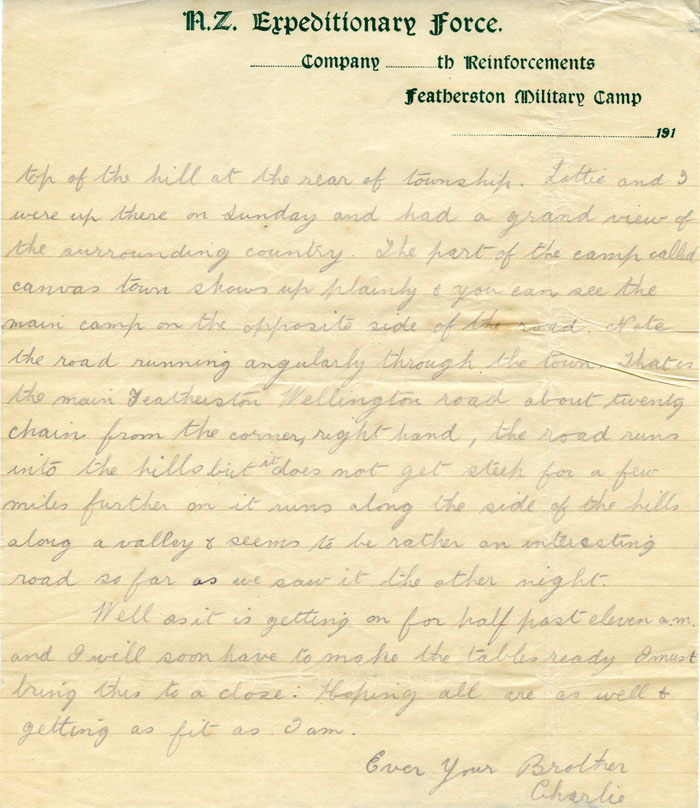 N.Z. Expeditionary Force.
Company th Reinforcements
Featherston Military Camp
191
top of the hill at the rear of township. Lottie and I
were up there on Sunday and had a grand view of
the surrounding country. The part of the camp called
canvas town shows up plainly & you can see the
main camp on the opposite side of the road. Note
the road running angularly through the town. That is
the main Featherston Wellington road about twenty
chain from the corner, right hand, the road runs
into the hills but it does not get steep for a few
miles further on it runs along the side of the hills
along a valley & seems to be rather an interesting
road so far as we saw it the other night.
Well as it is getting on for half past eleven a.m.
and I will soon have to make the tables ready I must
bring this to a close. Hoping all are as well &
getting as fit as I am.
Ever Your Brother
Charlie